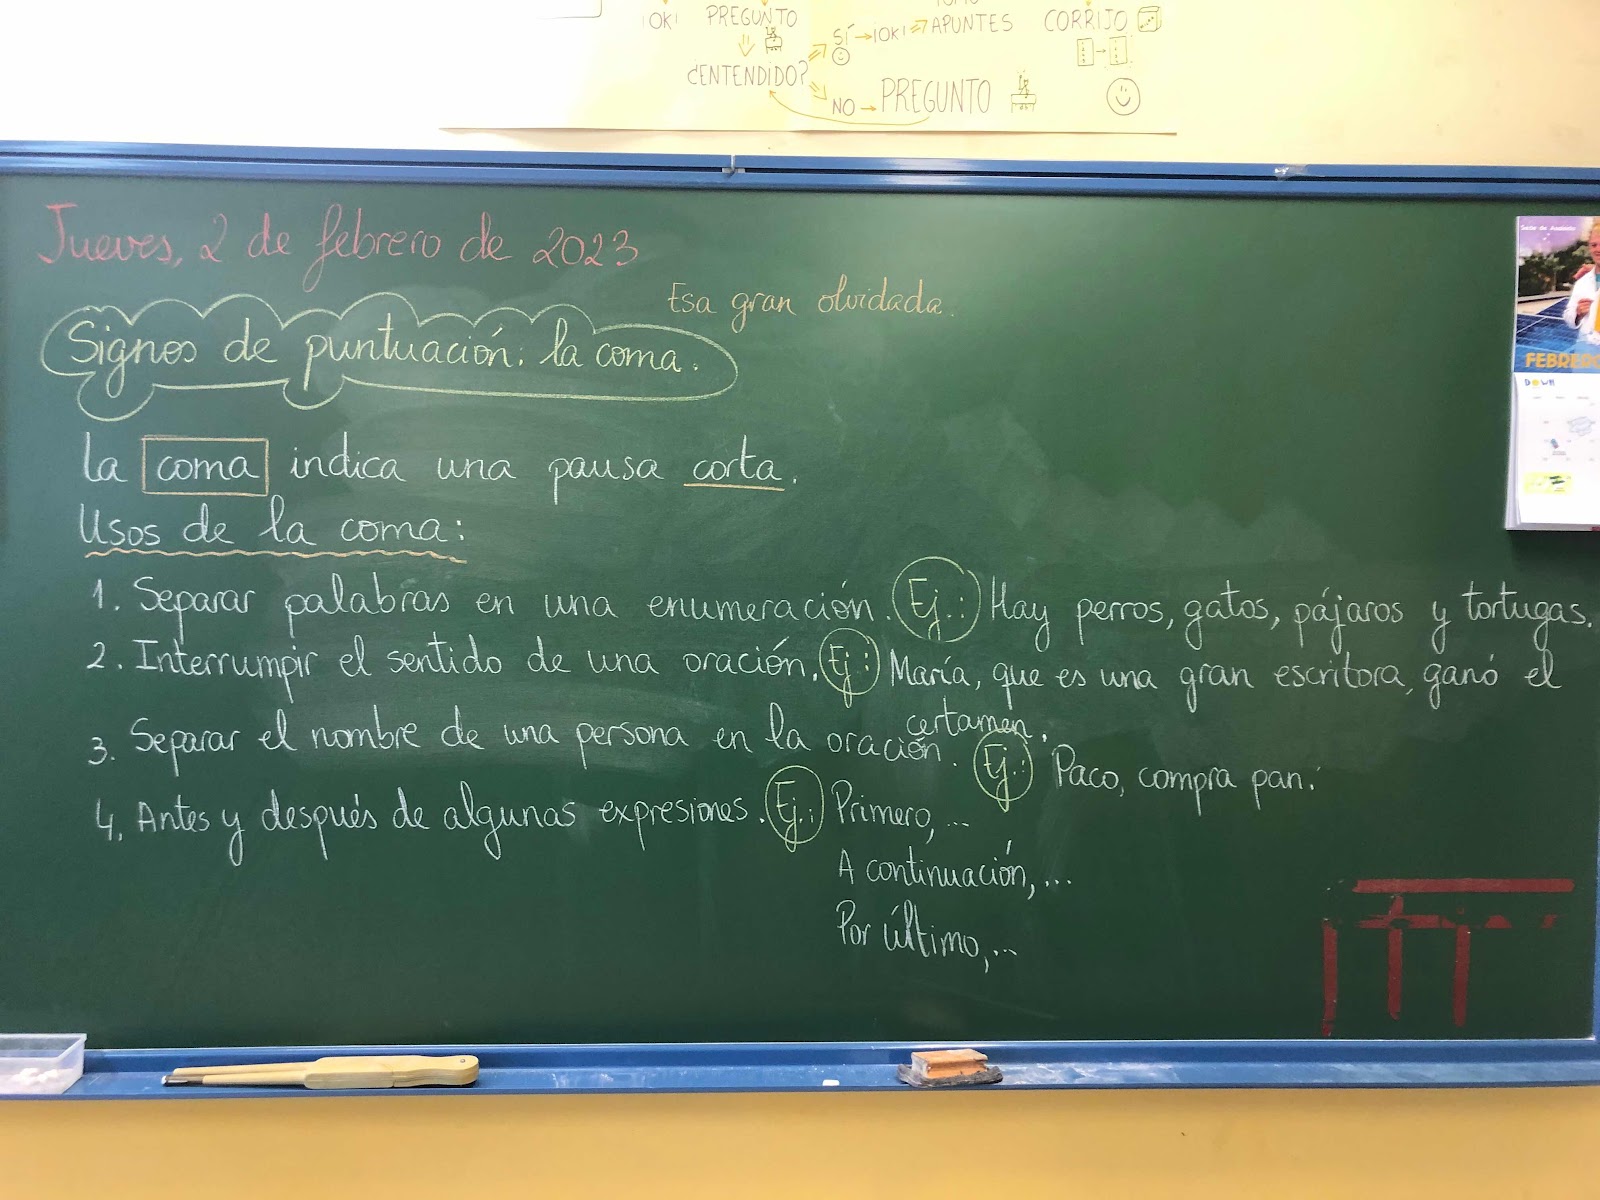 ¡OK!
PREGUNTO
¿ENTENDIDO?
SÍ → ¡OK! ⇒ APUNTES
NO → PREGUNTO
CORRIJO
Jueves, 2 de febrero de 2023
Esa gran olvidada.
Signos de puntuación: la coma.
La coma indica una pausa corta.
Usos de la coma:
1. Separar palabras en una enumeración. Ej.: Hay perros, gatos, pájaros y tortugas.
2. Interrumpir el sentido de una oración. Ej.: María, que es una gran escritora, ganó el
certamen.
3. Separar el nombre de una persona en la oración. Ej.: Paco, compra pan.
4. Antes y después de algunas expresiones. Ej.: Primero, ...
A continuación, ...
Por último, ...
FEBRERO
DOWN